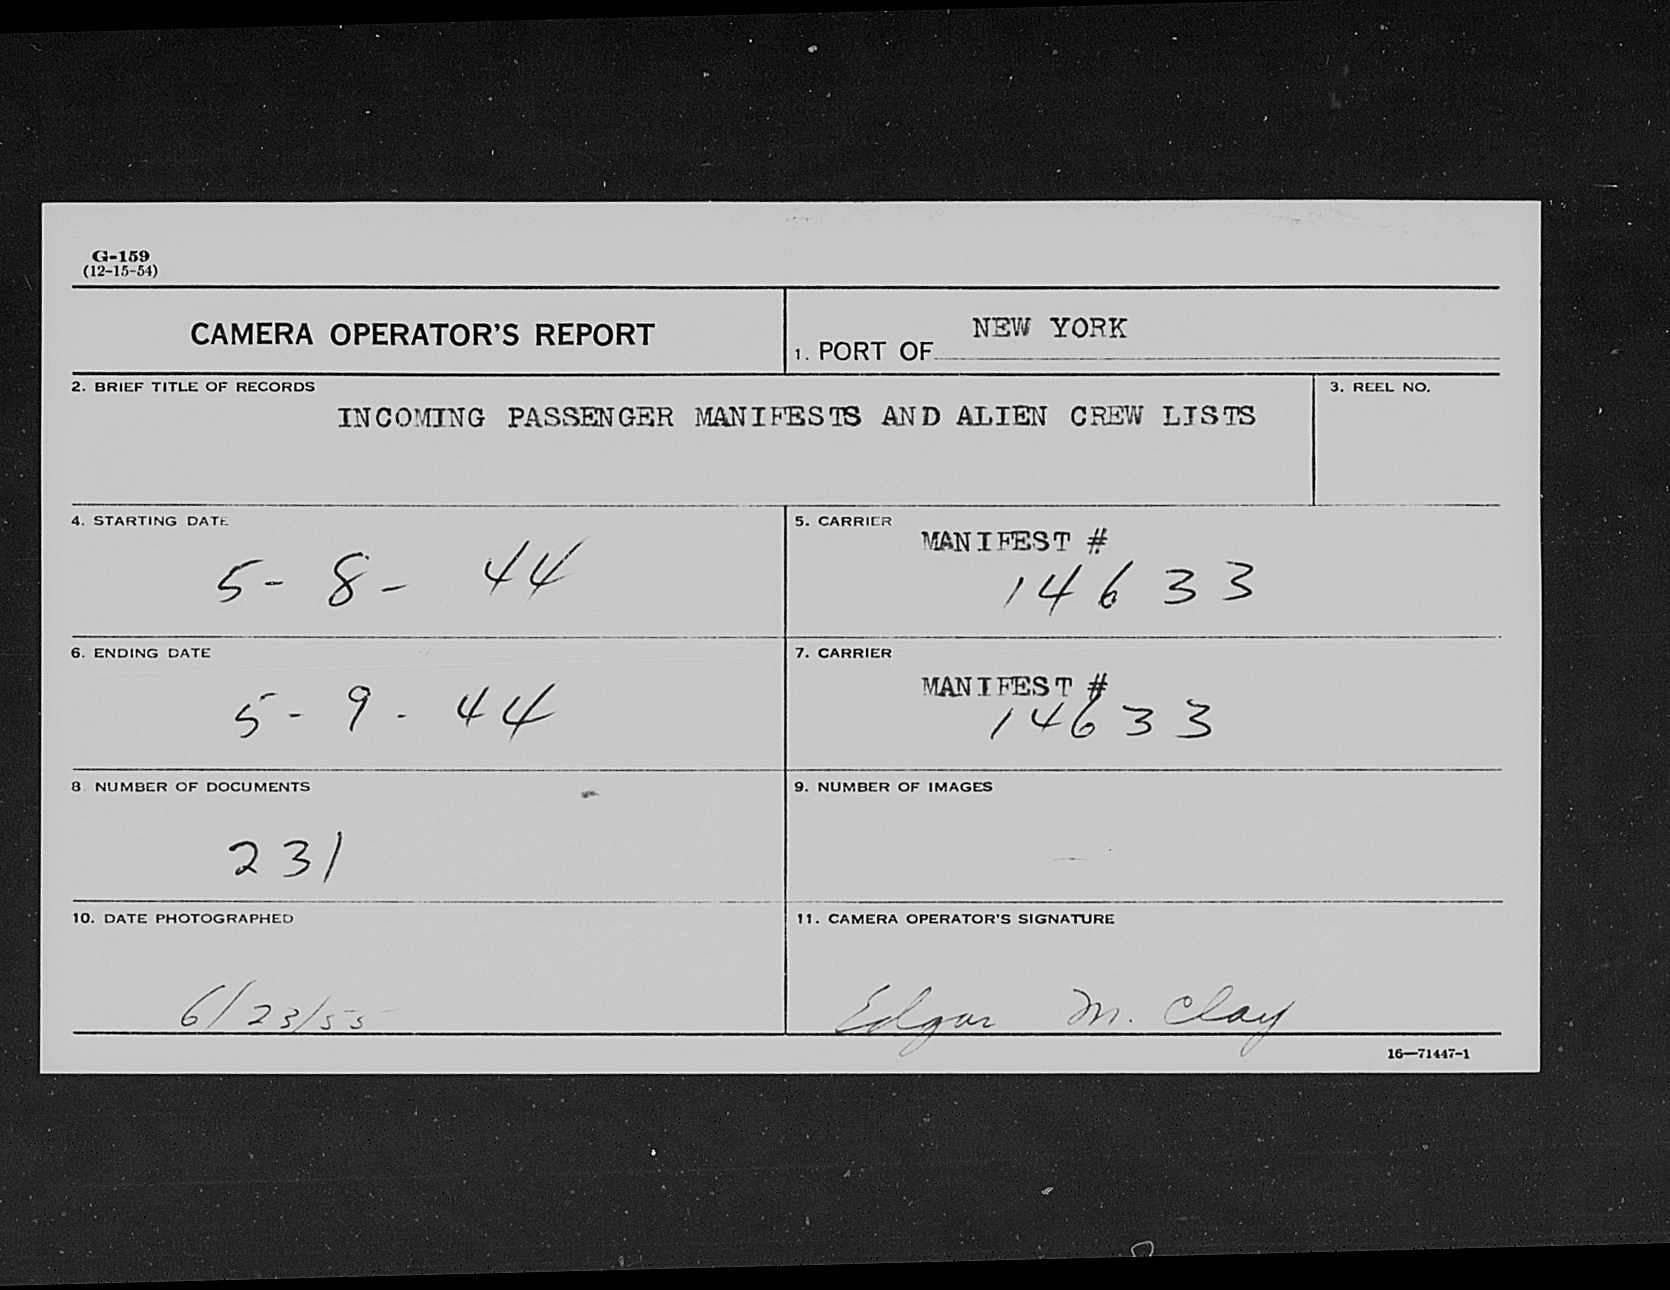 G-159
(12-15-54)
CAMERA OPERATOR'S REPORT
1. PORT OF NEW YORK
2. BRIEF TITLE OF RECORDS
INCOMING PASSENGER MANIFESTS AND ALIEN CREW LISTS
3. REEL NO.
4. STARTING DATE
5-8-44
5. CARRIER
MANIFEST #
14633
6. ENDING DATE
5-9-44
7. CARRIER
MANIFEST #
14633
8 NUMBER OF DOCUMENTS
231
9. NUMBER OF IMAGES
10. DATE PHOTOGRAPHED
6/23/55
11. CAMERA OPERATOR'S SIGNATURE
Edgar M. Clay
16—71447-1